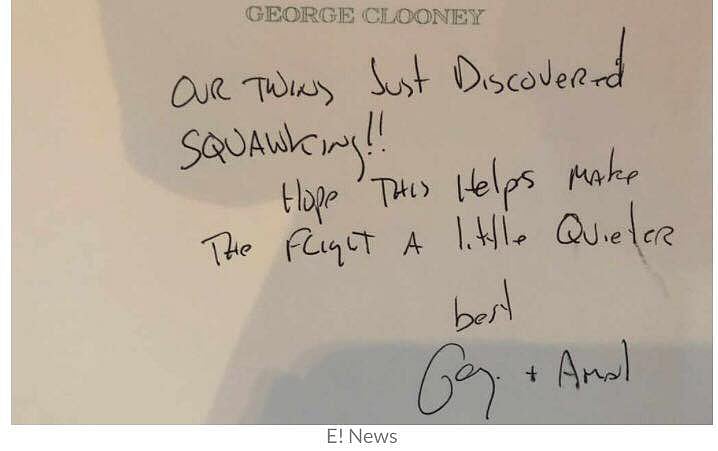 GEORGE CLOONEY
OUR TWINS JUST DISCOVERED
SQUAWKING!!
HOPE THIS HELPS MAKE
THE FLIGHT A little QUIETER
best
Geo. + AMAL
E! News